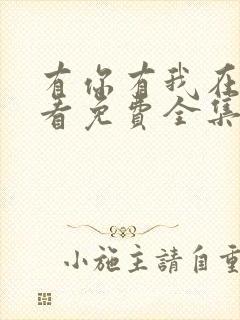 有你有我在
看免費全集
小施主請自重